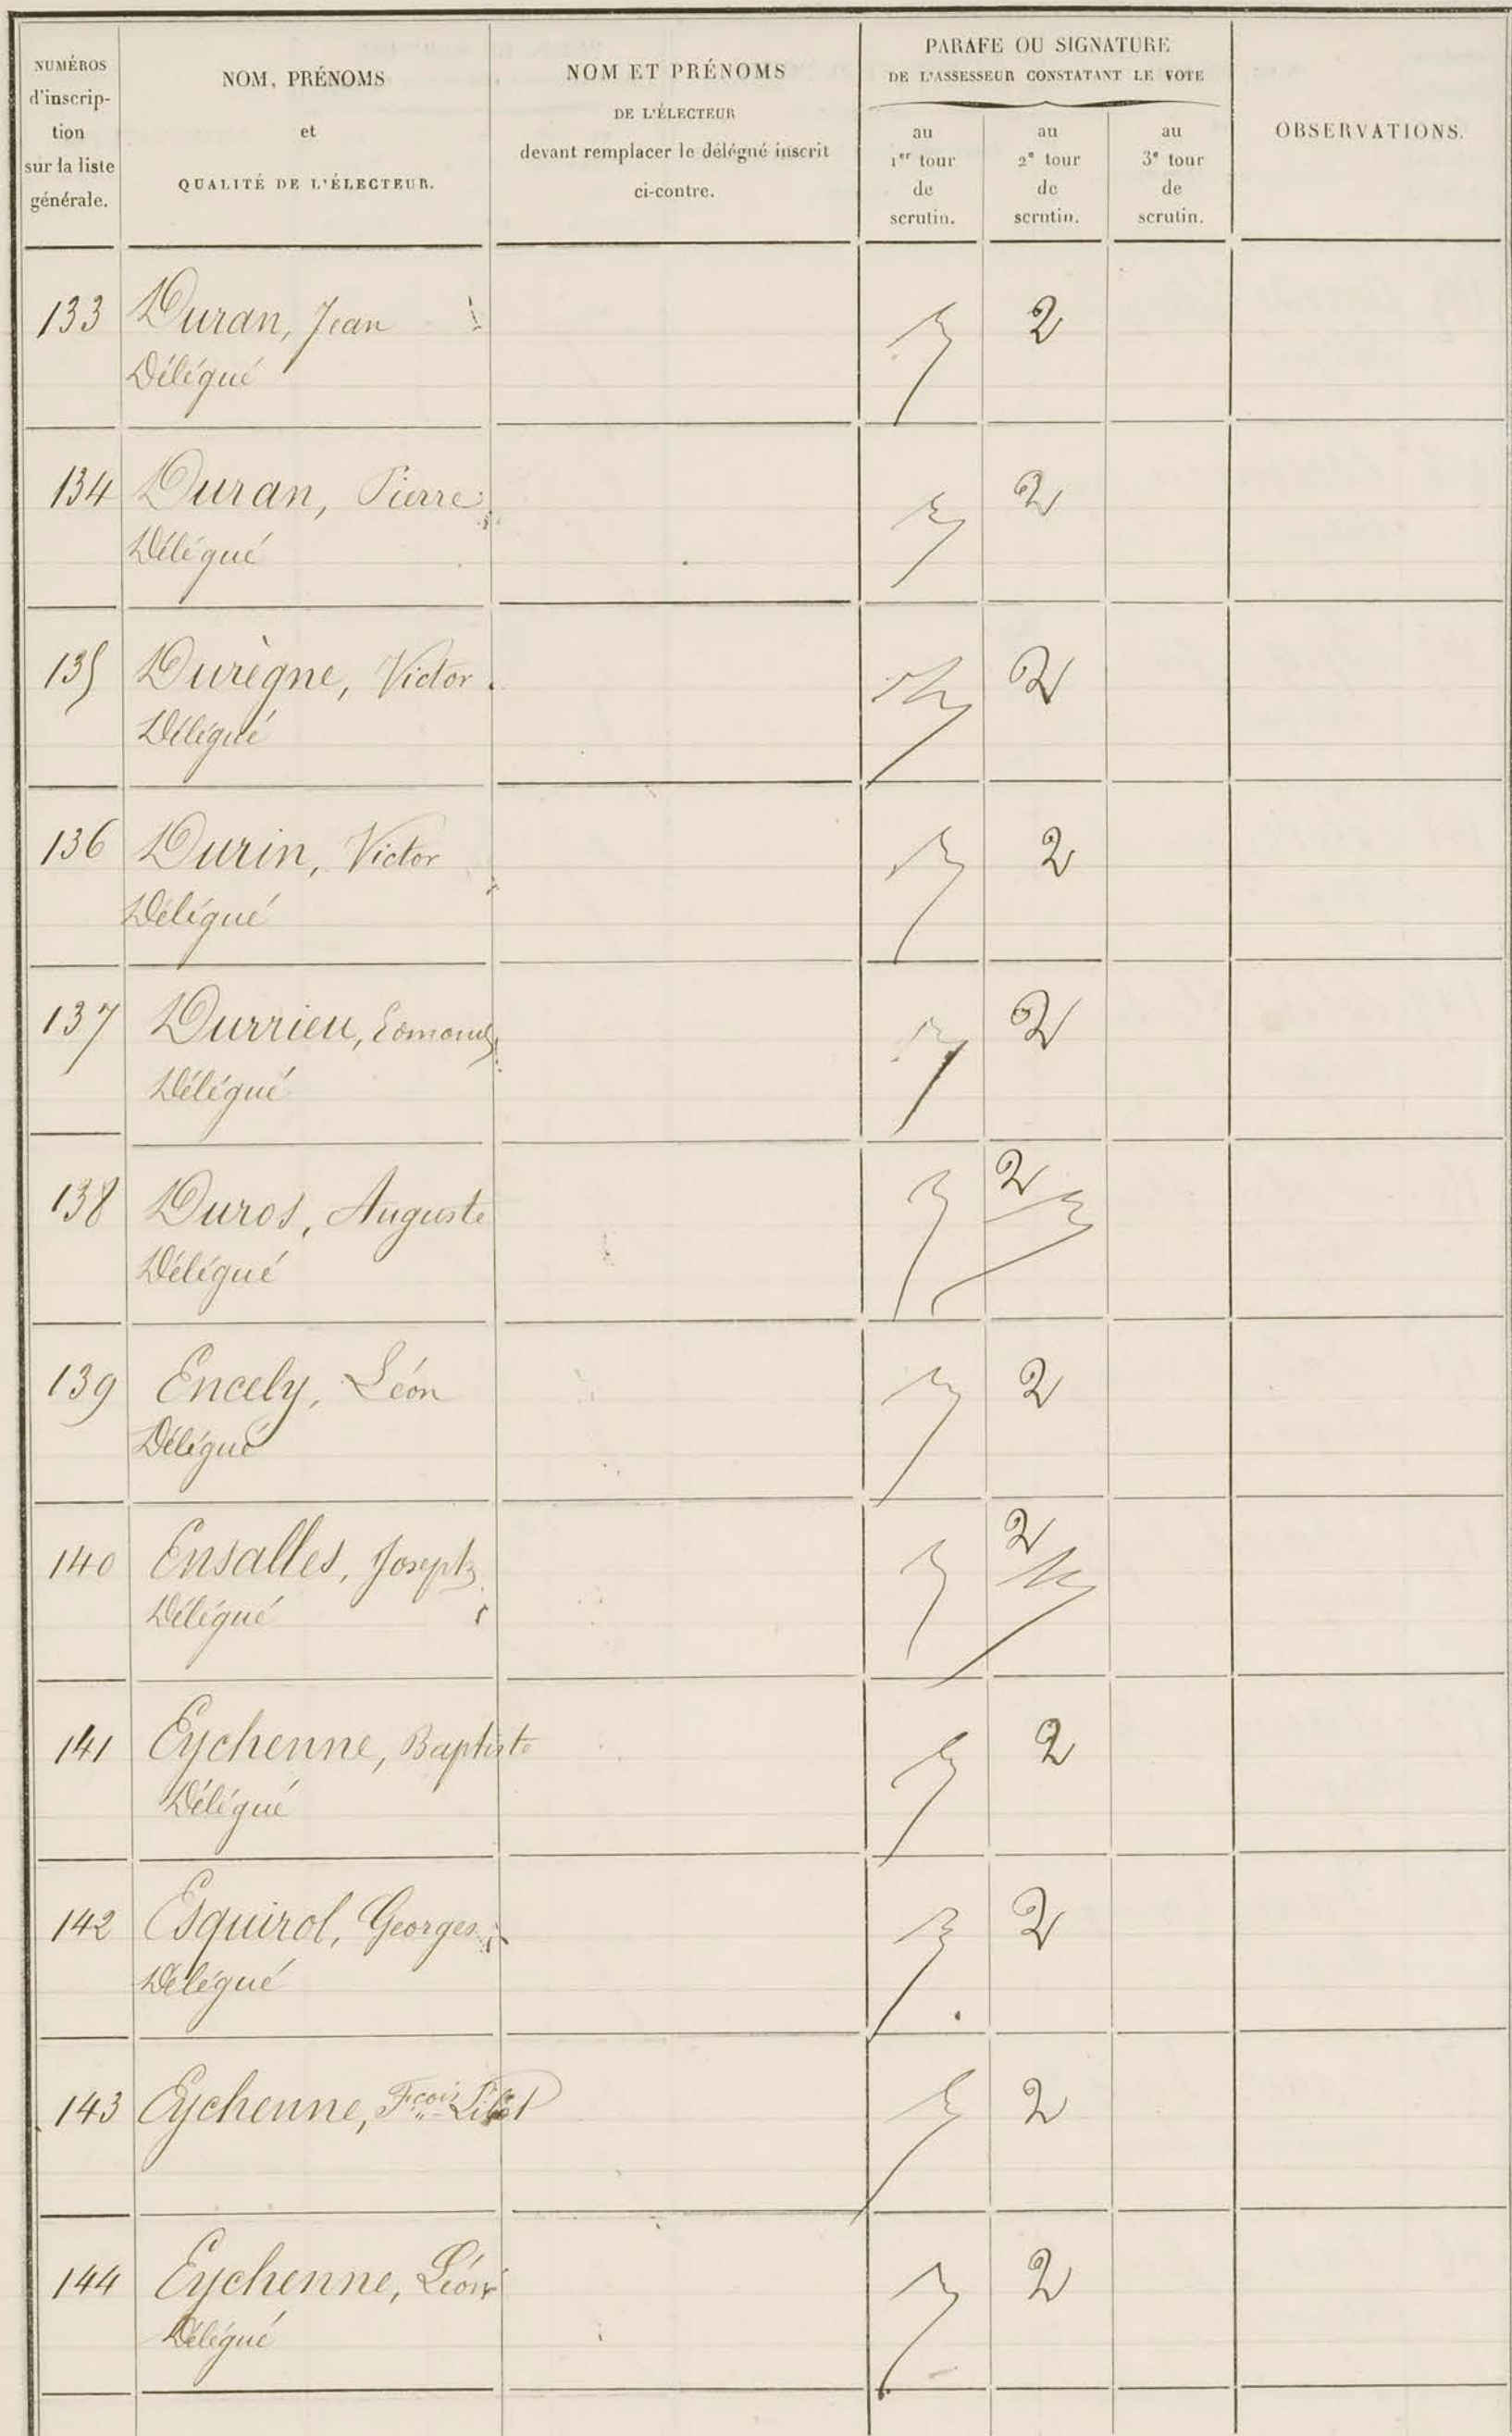 NUMÉROS
d'inscrip-
tion
sur la liste
générale.
NOM, PRÉNOMS
et
QUALITÉ DE L'ÉLECTEUR.
NOM ET PRÉNOMS
DE L'ÉLECTEUR
devant remplacer le délégué inscrit
ci-contre.
PARAFE OU SIGNATURE
DE L'ASSESSEUR CONSTATANT LE VOTE
au
1er tour
de
scrutin.
au
2e tour
de
scrutin.
au
3e tour
de
scrutin.
OBSERVATIONS.
133 Duran, Jean 2
Délégué
134 Duran, Pierre 2
Délégué
135 Durègne, Victor 2
Délégué
136 Durin, Victor 2
Délégué
137 Durrieu, Edmond 2
Délégué
138 Duros, Auguste 2
Délégué
139 Encely, Léon 2
Délégué
140 Ensalles, Joseph 2
Délégué
141 Eychenne, Baptiste 2
Délégué
142 Esquirol, Georges 2
Délégué
143 Eychenne, Fçois 2
144 Eychenne, Léon 2
Délégué